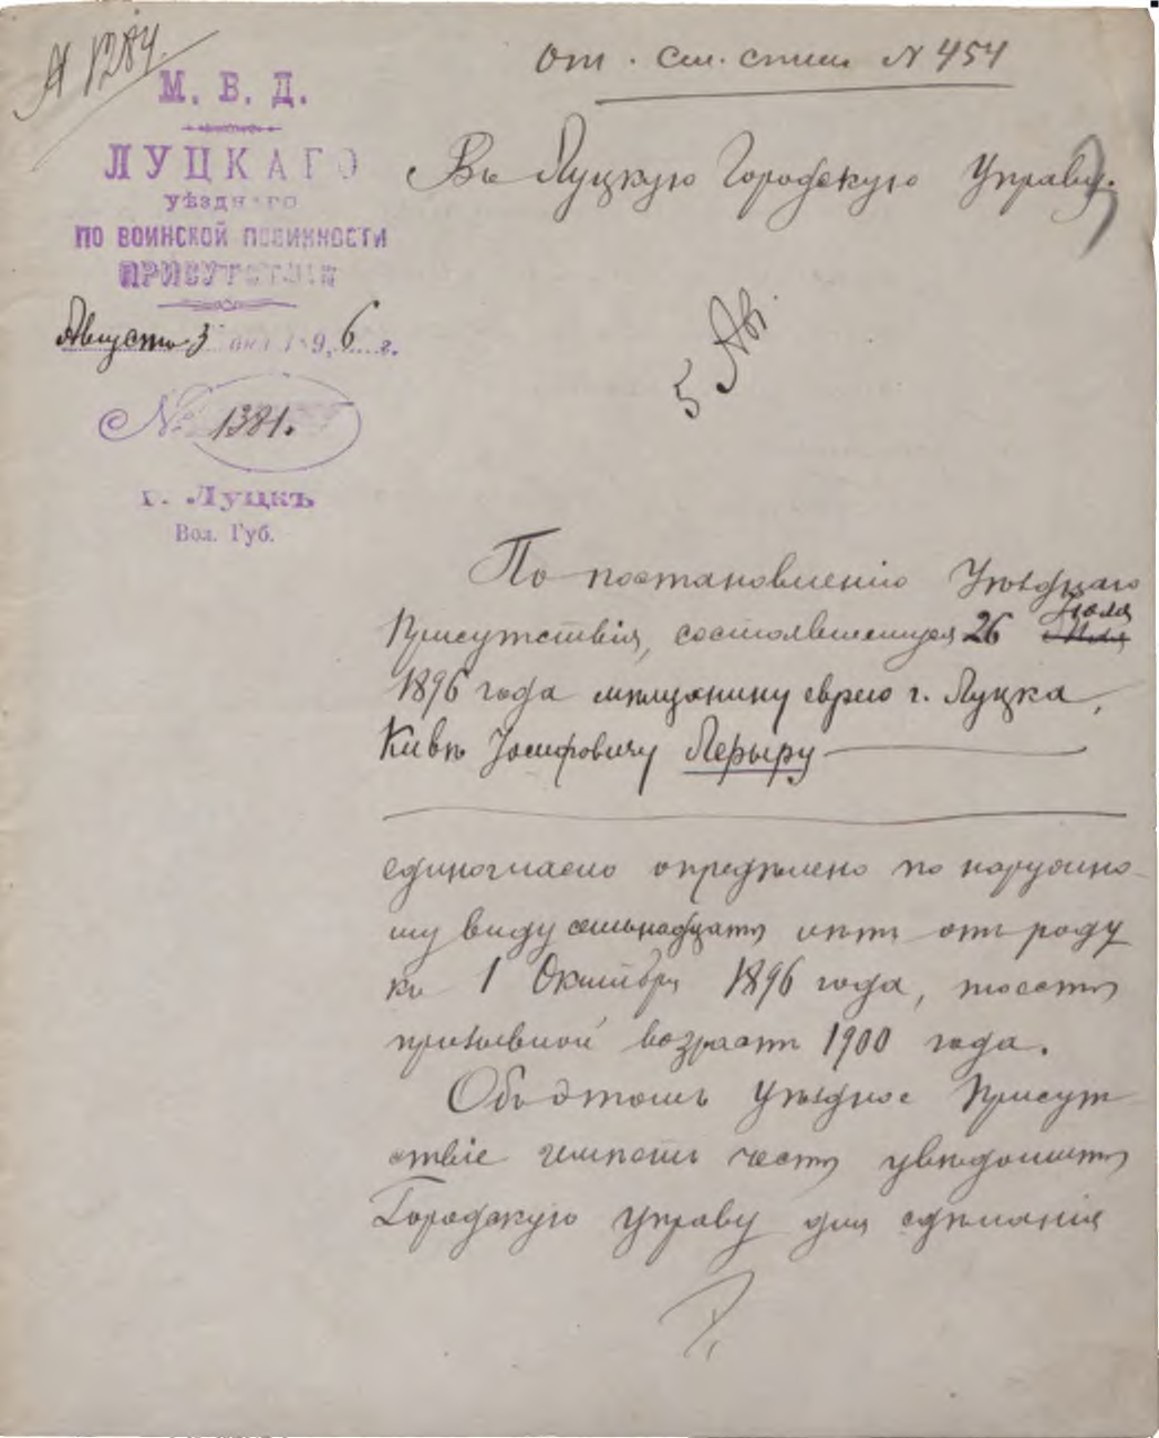 № 1284.
М. В. Д.
ЛУЦКАГО
уѣзднаго
ПО ВОИНСКОЙ ПОВИННОСТИ
ПРИСУТСТВІЯ
Августа 3 дня 1896 г.
№ 1381.
г. Луцкъ
Вол. Губ.
От. № 454
Въ Луцкую Городскую Управу.
5 Ав.
По постановленію Уѣзднаго
Присутствія, состоявшемуся 26 Іюля
1896 года мѣщанину еврею г. Луцка,
Кивѣ Іосифовичу Перыру
единогласно опредѣлено по наружно-
му виду семьнадцать лѣтъ отъ роду
къ 1 Октября 1896 года, то есть
призывной возрастъ 1900 года.
Объ этомъ Уѣздное Присут
ствіе имѣетъ честь увѣдомить
Городскую Управу для сдѣланія